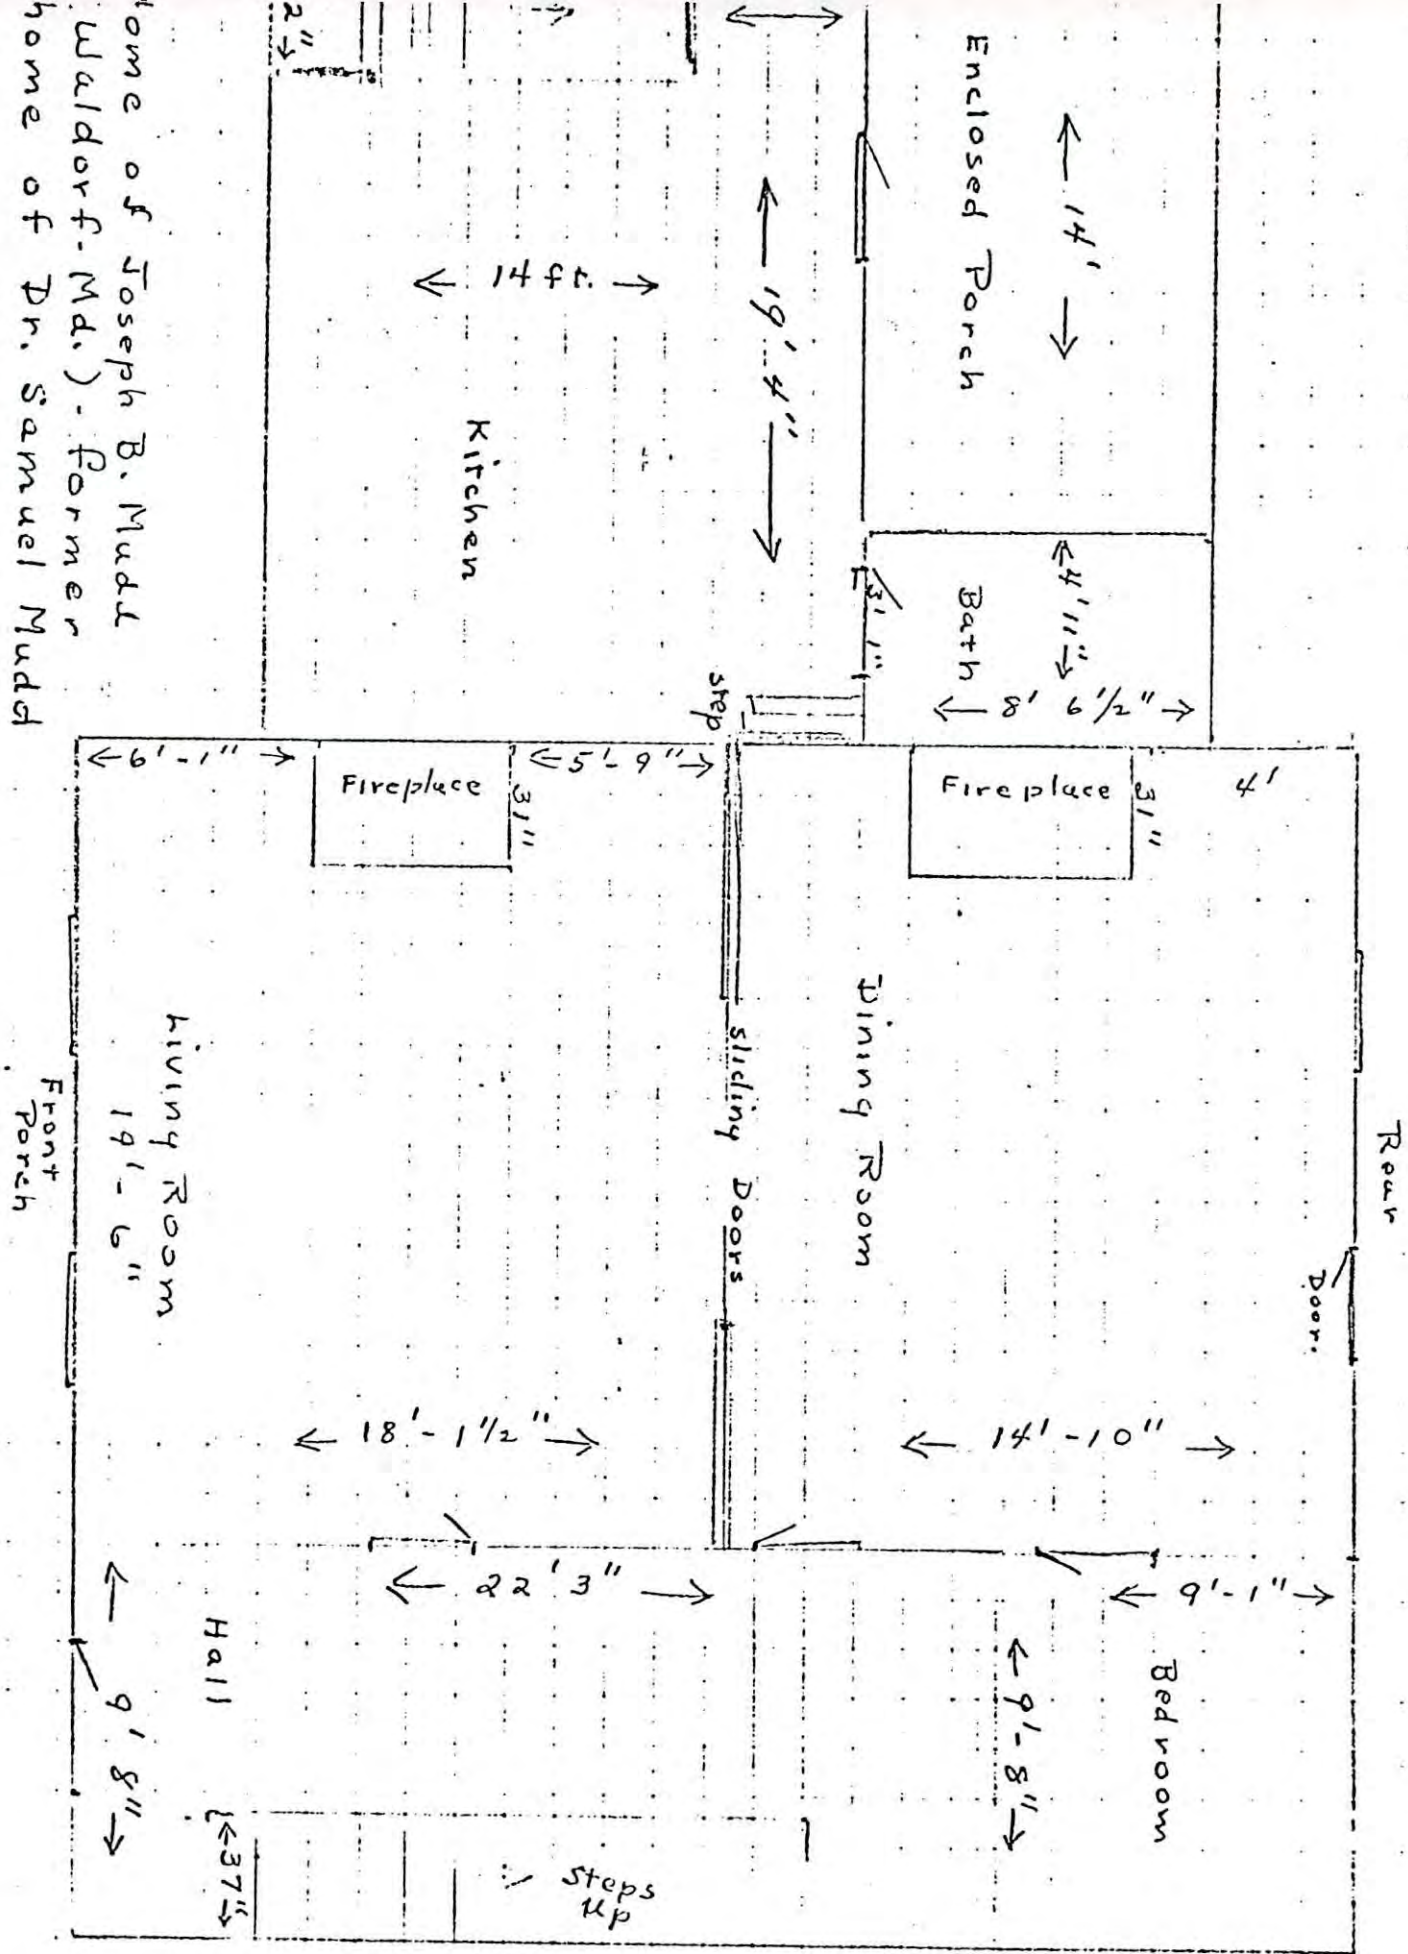 2"
Enclosed Porch
14'
14 ft.
19' 4"
Kitchen
Bath
4' 11"
3' 1"
8' 6 1/2"
step
6'-1"
Fireplace
31"
5'-9"
Fireplace
31"
4'
Rear
Door.
Dining Room
Sliding Doors
Living Room
19'-6"
Front
Porch
18'-1 1/2"
14'-10"
22' 3"
9'-1"
Hall
9' 8"
Bedroom
9'-8"
37"
Steps
Up
ome of Joseph B. Mudd
Waldorf-Md.) - former
home of Dr. Samuel Mudd